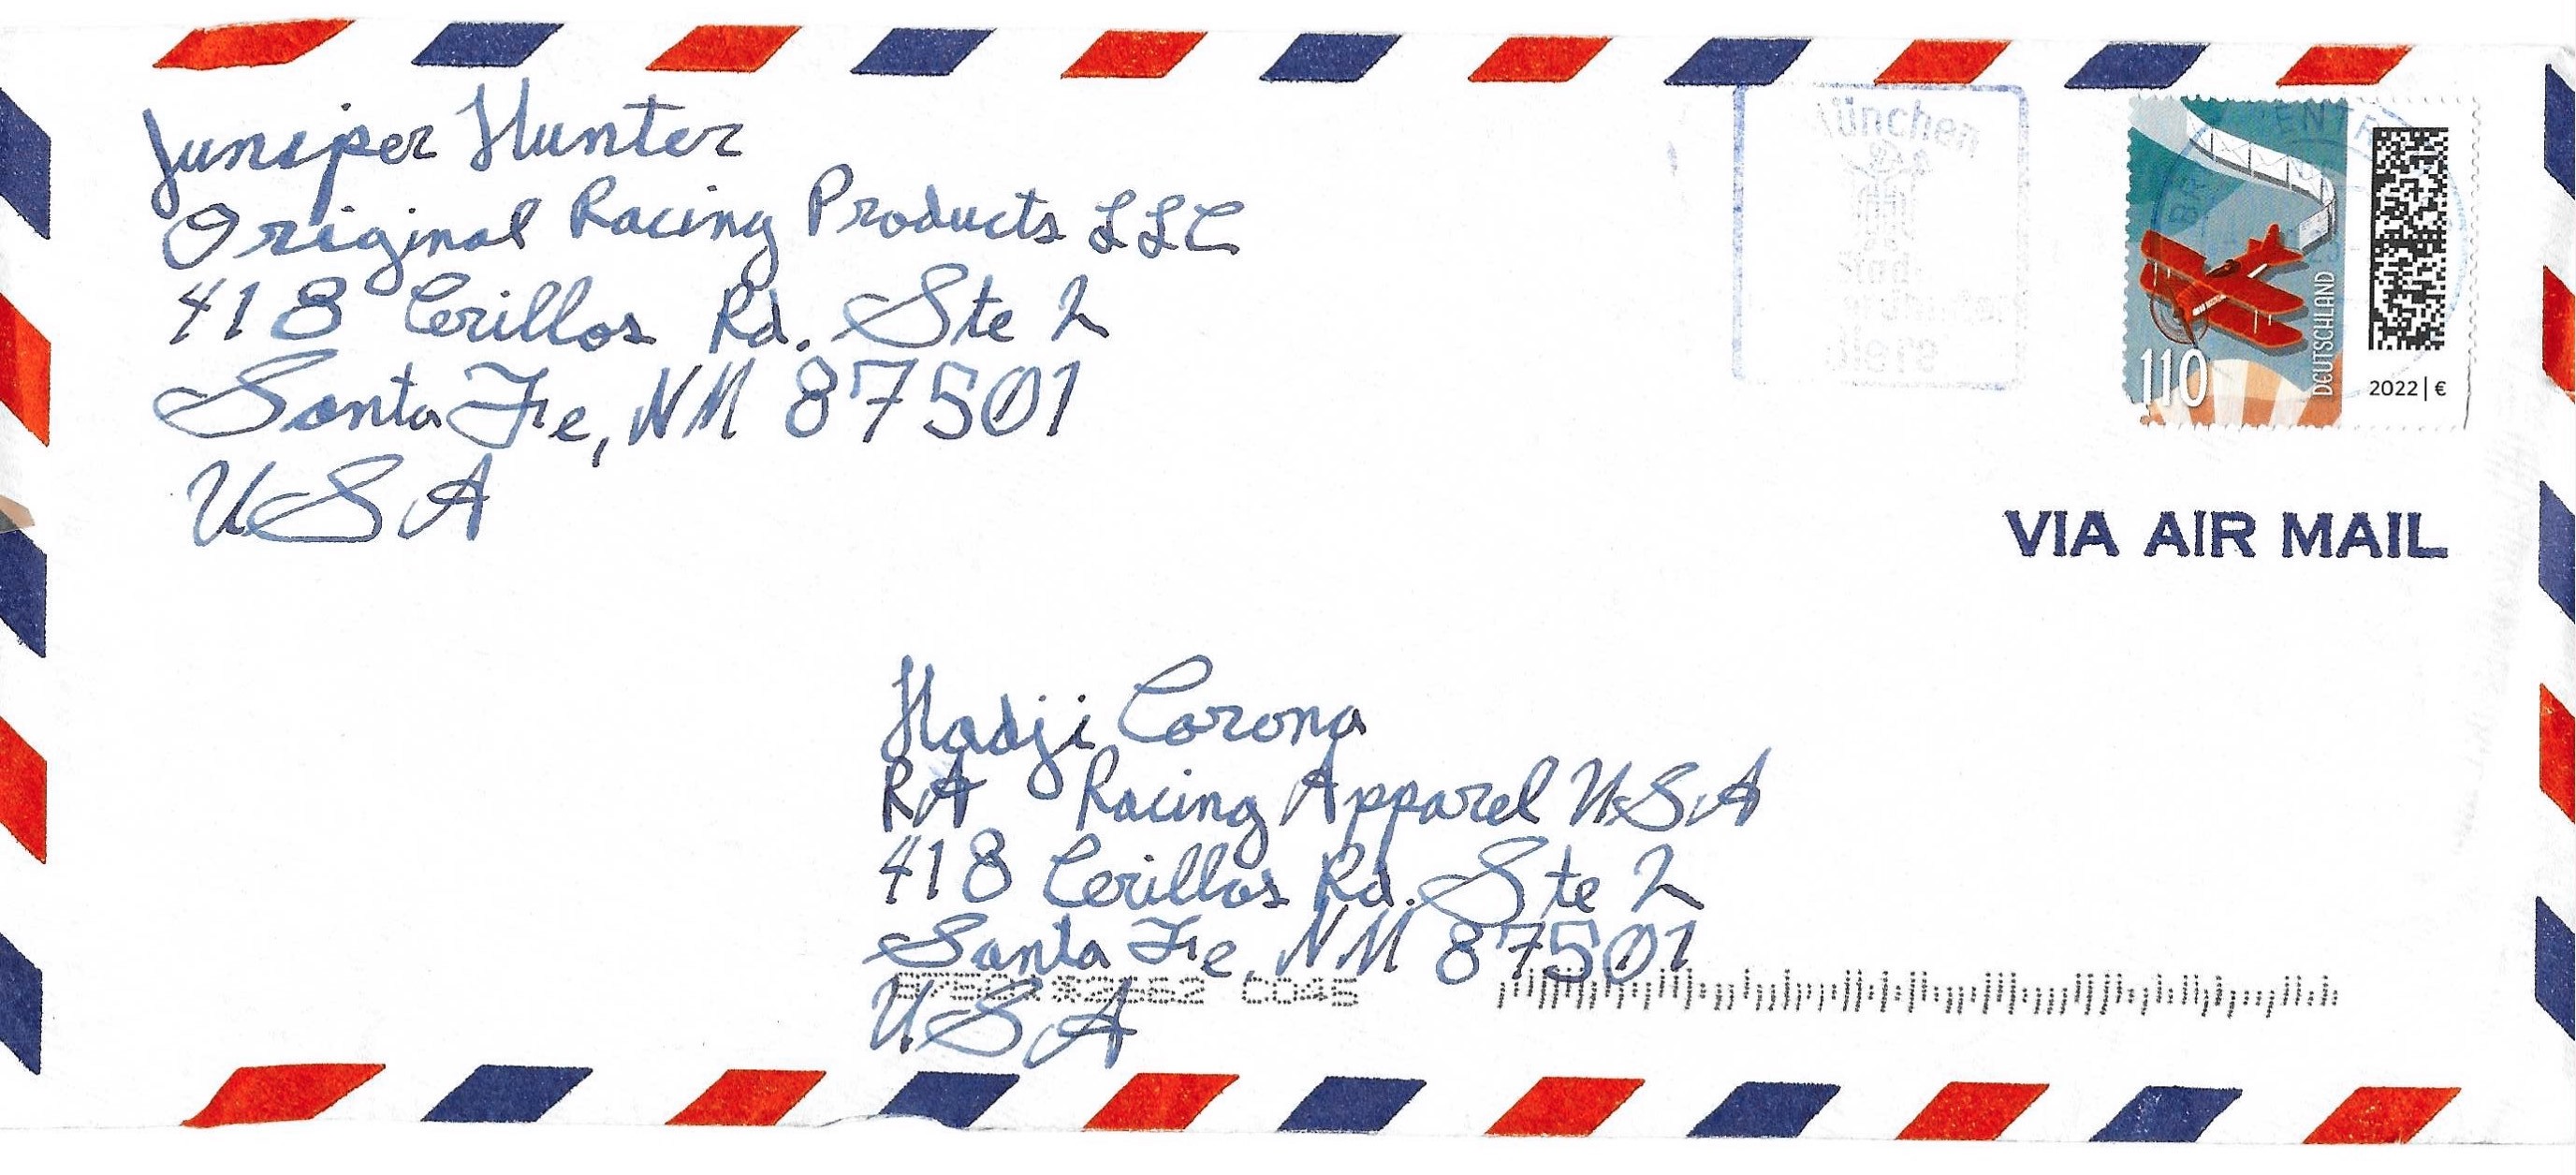 Juniper Hunter
Original Racing Products LLC
418 Cerillos Rd. Ste 2
Santa Fe, NM 87501
USA
München
110
DEUTSCHLAND
2022 | €
VIA AIR MAIL
Hadji Corona
RA Racing Apparel USA
418 Cerillos Rd. Ste 2
Santa Fe, NM 87501
C045
USA